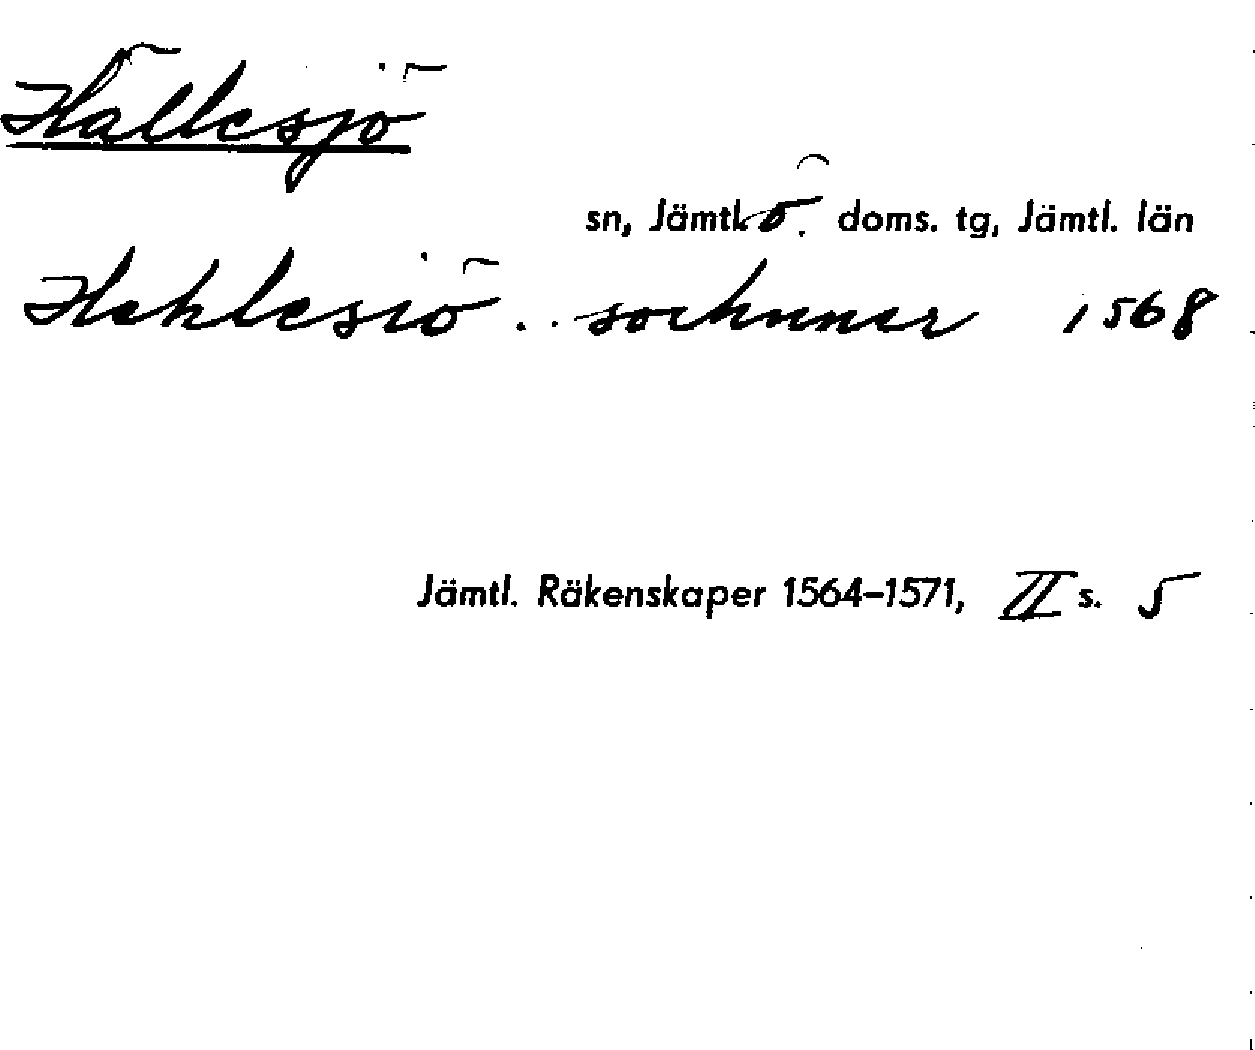 Hällesjö
sn, Jämtl. ö. doms. tg, Jämtl. län
Hehlesiö .. sochnner 1568
Jämtl. Räkenskaper 1564–1571, II s. 5